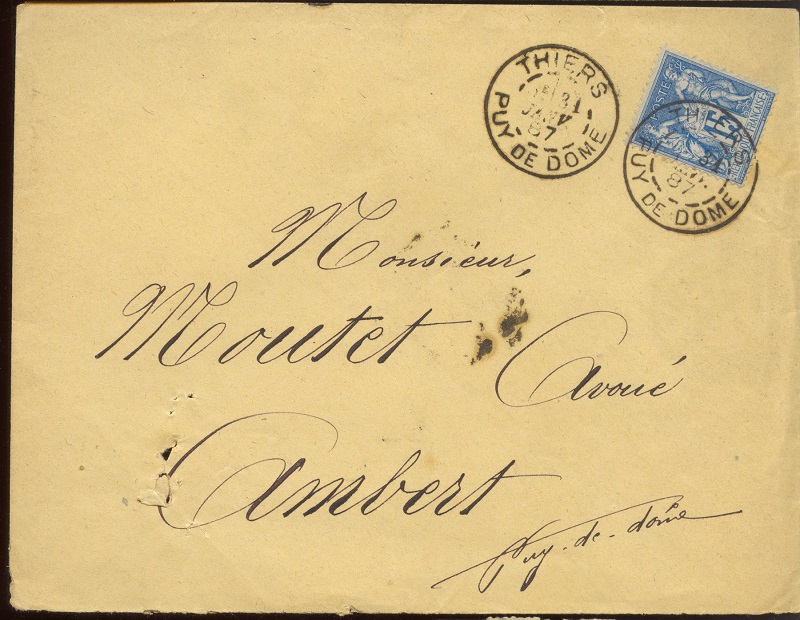 THIERS
31
JANV
87
PUY DE DOME
POSTE
THIERS
31
87
PUY DE DOME
Monsieur,
Moutet Avoué
Ambert
Puy-de-dôme